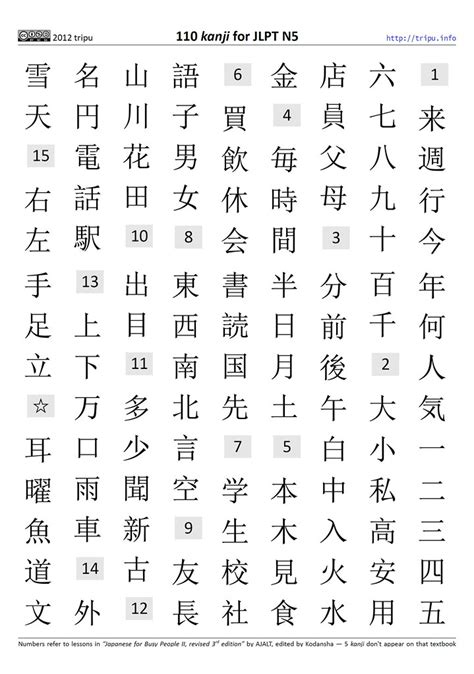 cc 2012 tripu
110 kanji for JLPT N5
http://tripu.info
1 来 週 行 今 年 何 人 気 一 二 三 四 五
六 七 八 九 十 百 千 2 大 小 私 高 安 用
店 員 父 母 3 分 前 後 午 白 中 入 火 水
金 4 毎 時 間 半 日 月 土 5 本 木 見 食
6 買 飲 休 会 書 読 国 先 7 学 生 校 社
語 子 男 女 8 東 西 南 北 言 空 9 友 長
山 川 花 田 10 出 目 11 多 少 聞 新 古 12
名 円 電 話 駅 13 上 下 万 口 雨 車 14 外
雪 天 15 右 左 手 足 立 ☆ 耳 曜 魚 道 文
Numbers refer to lessons in “Japanese for Busy People II, revised 3rd edition” by AJALT, edited by Kodansha — 5 kanji don't appear on that textbook